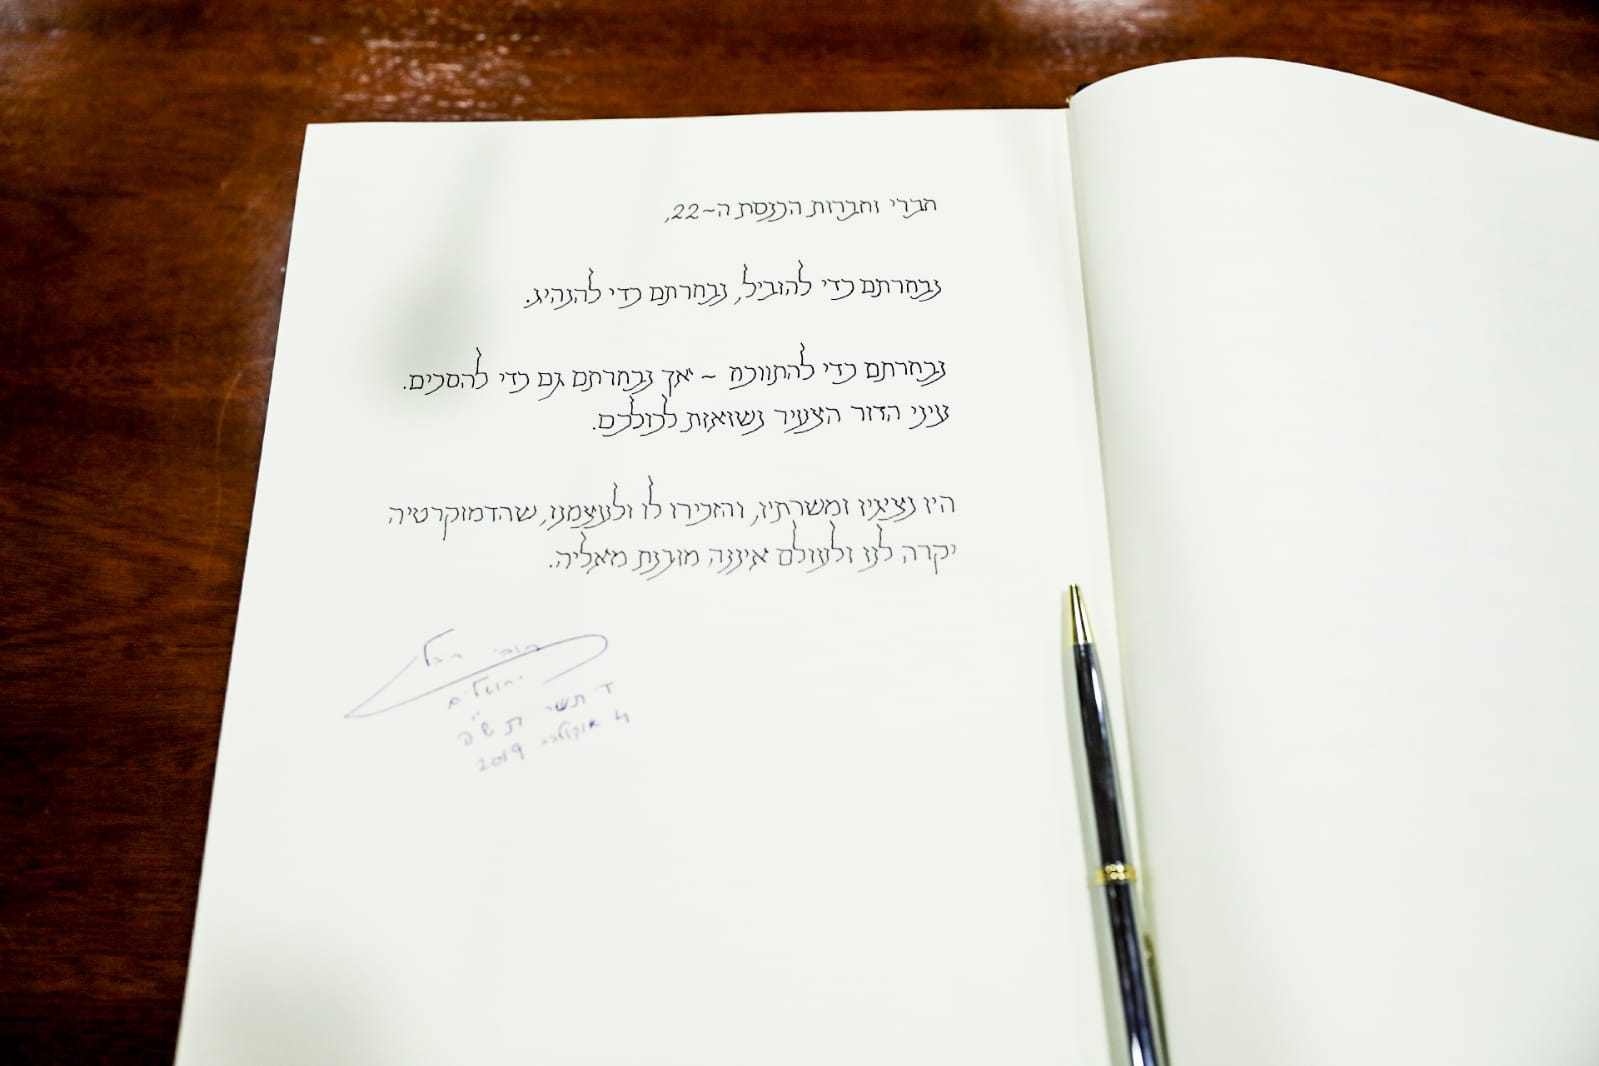 חברי וחברות הכנסת ה-22,
נבחרתם כדי להוביל, נבחרתם כדי להנהיג.
נבחרתם כדי להתווכח - אך נבחרתם גם כדי להסכים.
עיני הדור הצעיר נשואות לכולכם.
היו נציגיו ומשרתיו, והזכירו לו ולעצמנו, שהדמוקרטיה
יקרה לנו ולעולם איננה מובנת מאליה.
רובי ריבלין
ירושלים
ד' תשרי תש"פ
אוקטובר 2019